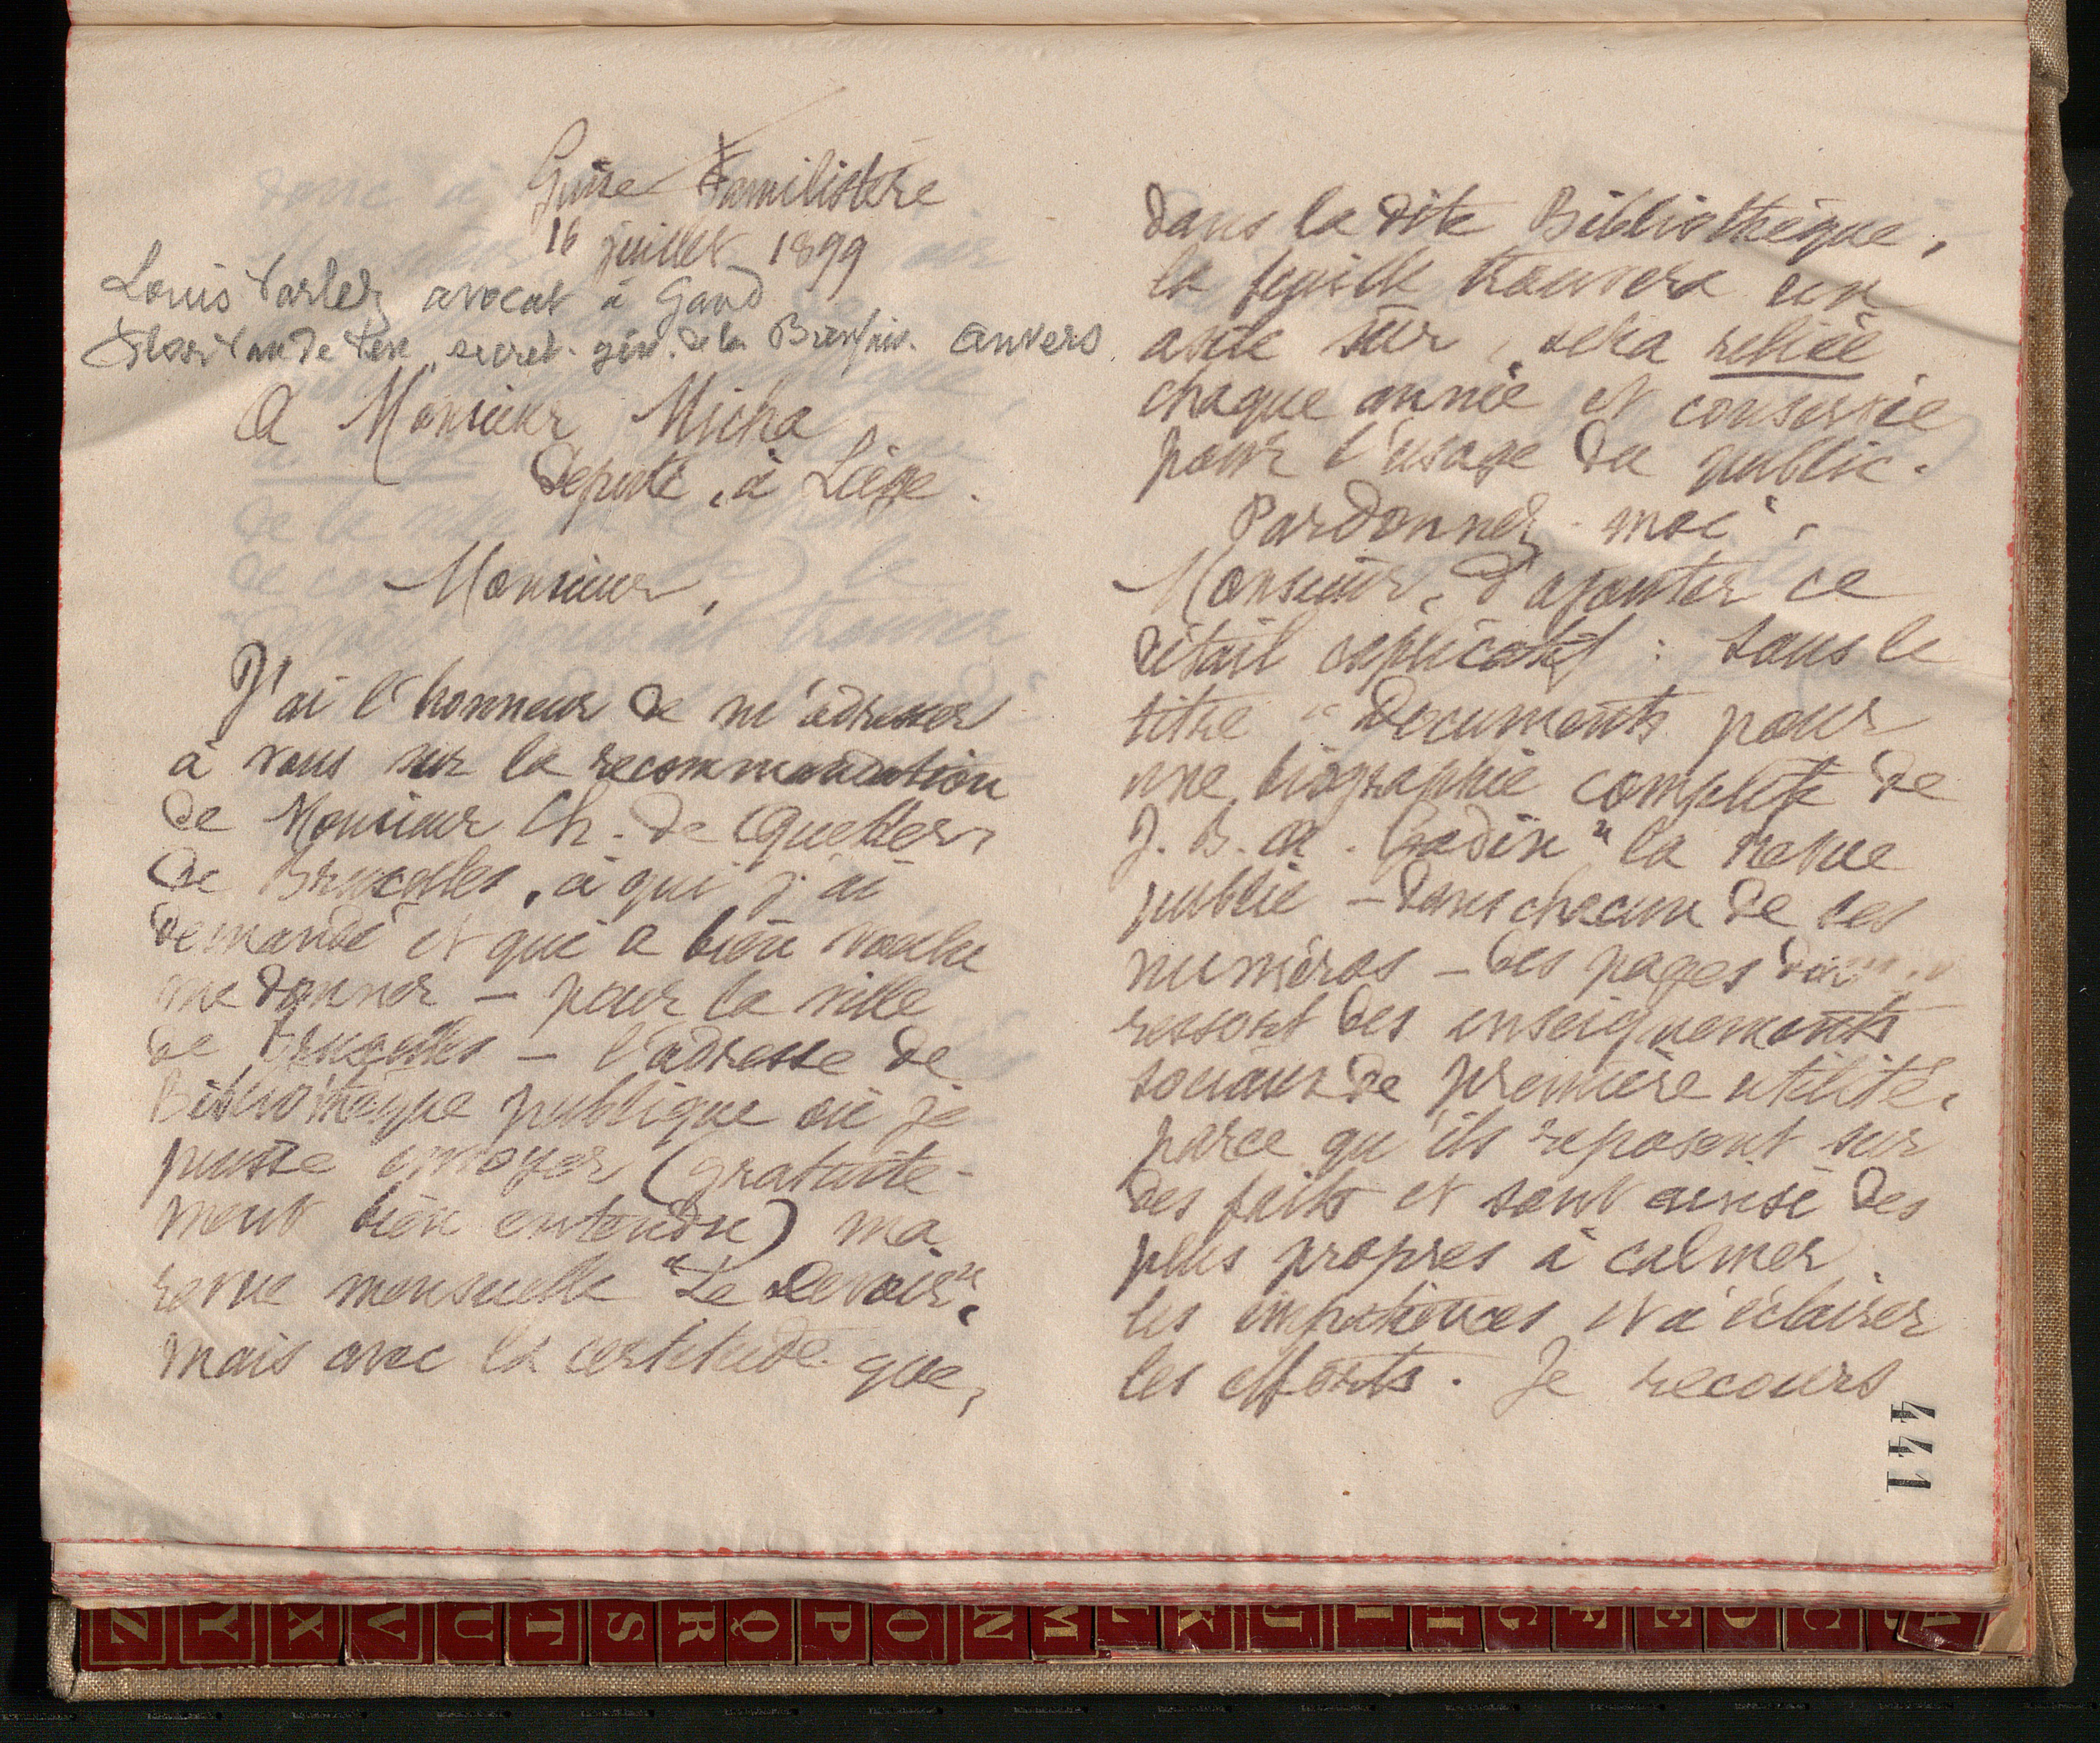 Guise Familistère
16 juillet 1899
Louis Varlez avocat à Gand
secret. gén. de la Bienfais. Anvers.
A Monsieur Micha
député, à Liège.
Monsieur,
J'ai l'honneur de m'adresser
à vous sur la recommandation
de Monsieur Ch. de Quéker,
de Bruxelles, à qui j'ai
demandé et qui a bien voulu
me donner - pour la ville
de Bruxelles - l'adresse de
Bibliothèque publique où je
puisse envoyer (gratuite-
ment bien entendu) ma
revue mensuelle "Le Devoir",
mais avec la certitude que,
dans la dite Bibliothèque,
la feuille trouvera un
asile sûr, sera reliée
chaque année et conservée
pour l'usage du public.
Pardonnez-moi,
Monsieur, d'ajouter ce
détail explicatif : sous le
titre "Documents pour
une biographie complète de
J. B. A. Godin" la revue
publie - dans chacun de ses
numéros - des pages d'où
ressort des enseignements
sociaux de première utilité,
parce qu'ils reposent sur
des faits et sont ainsi des
plus propres à calmer
les impatiences et à éclairer
les efforts. Je recours
441
Z Y X V U T S R Q P O N M L K J I H G F E D C B A